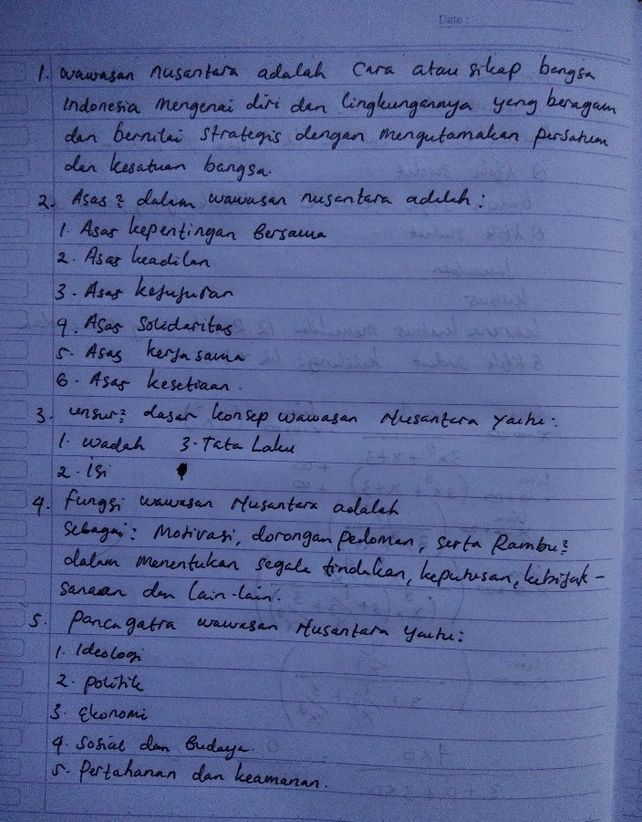 Date :
1. wawasan nusantara adalah Cara atau sikap bangsa
Indonesia mengenai diri dan lingkungannya yang beragam
dan bernilai strategis dengan mengutamakan persatuan
dan kesatuan bangsa.
2. Asas2 dalam wawasan nusantara adalah :
1. Asas kepentingan Bersama
2. Asas keadilan
3. Asas kejujuran
4. Asas Solidaritas
5. Asas kerja sama
6. Asas kesetiaan.
3. unsur2 dasar konsep wawasan Nusantara yaitu :
1. wadah 3. Tata Laku
2. isi
4. fungsi wawasan Nusantara adalah
sebagai : Motivasi, dorongan pedoman, serta Rambu2
dalam menentukan segala tindakan, keputusan, kebijak-
sanaan dan lain-lain.
5. panca gatra wawasan Nusantara yaitu :
1. Ideologi
2. politik
3. Ekonomi
4. Sosial dan Budaya.
5. Pertahanan dan keamanan.